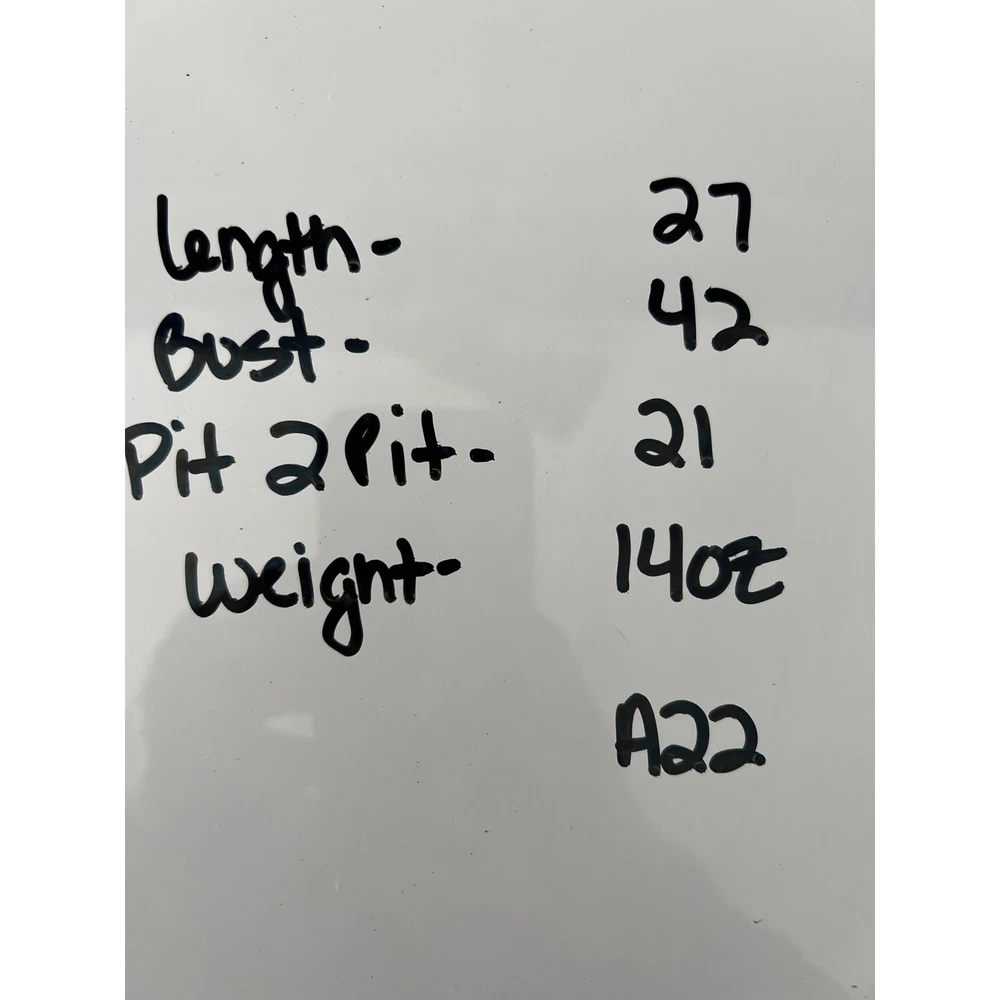 Length- 27
Bust- 42
Pit 2 Pit- 21
Weight- 14oz
A22